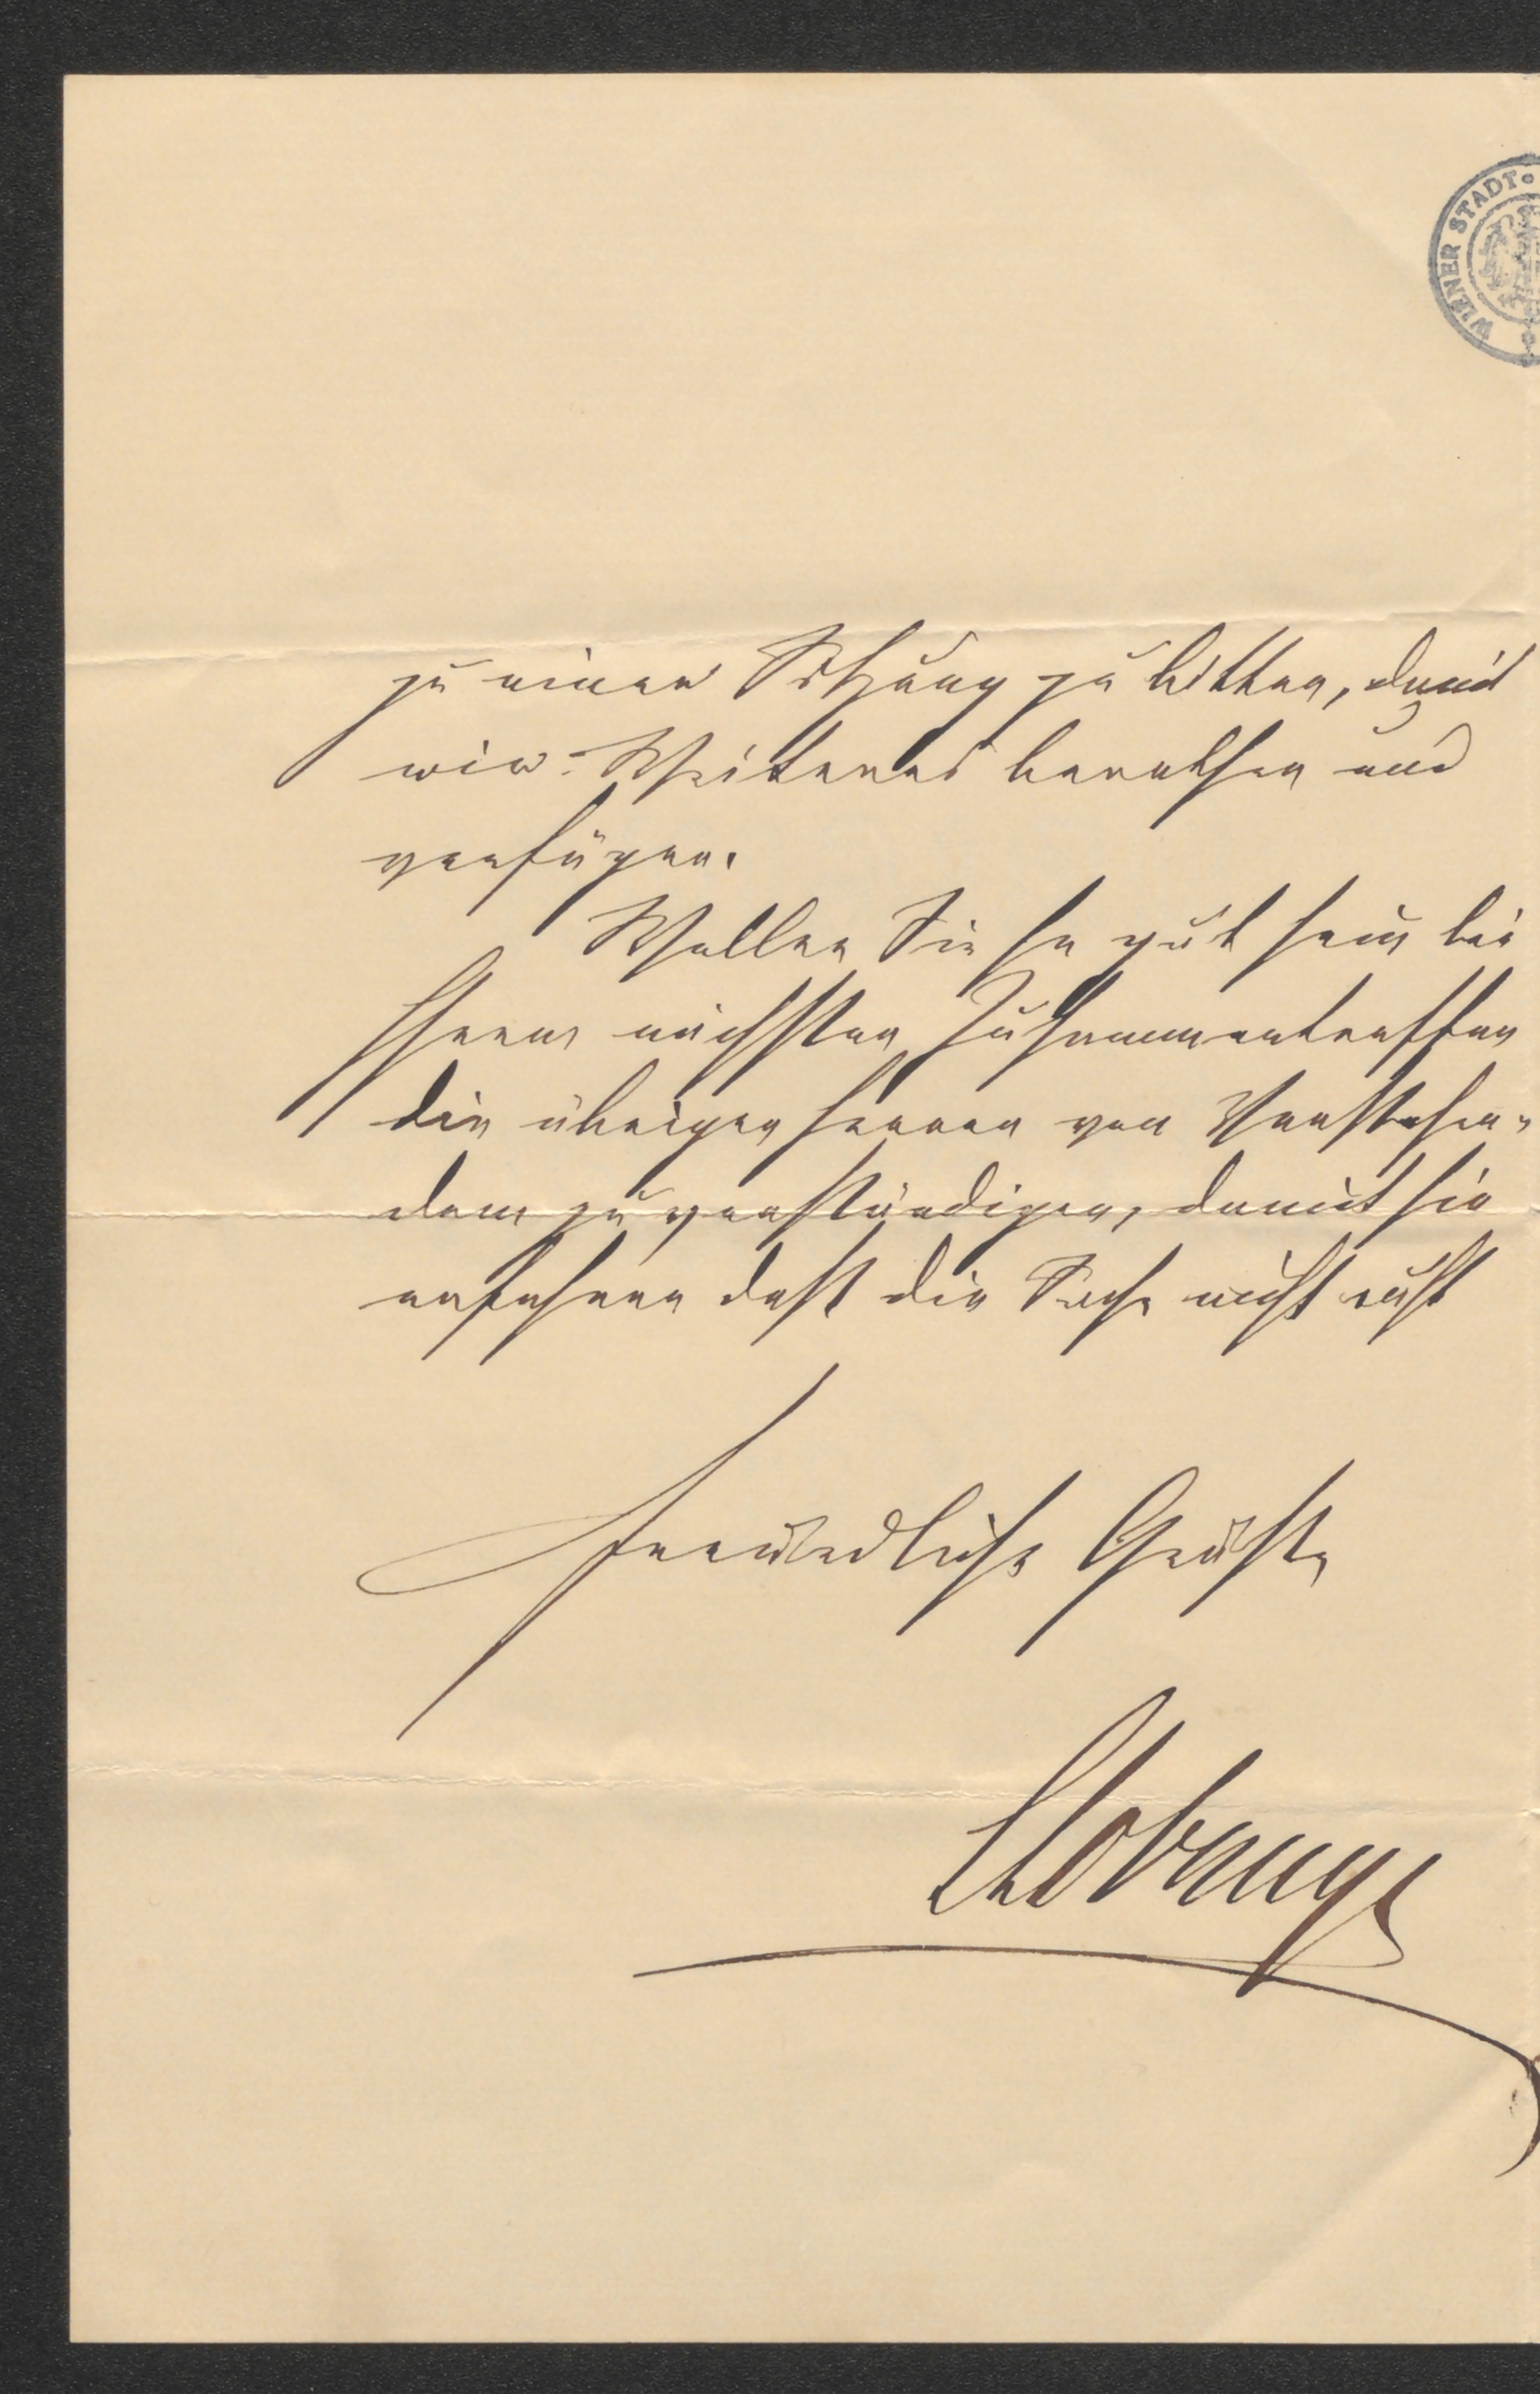 WIENER STADT
zu einer Sitzung zu bitten, damit
wir Weiteres berathen und
verfügen.
Wollen Sie so gut sein bei
Ihrem nächsten Zusammentreffen
die übrigen Herren von Vorstehen-
dem zu verständigen, damit sie
erfahren daß die Sache nicht ruht
Freundliche Grüße